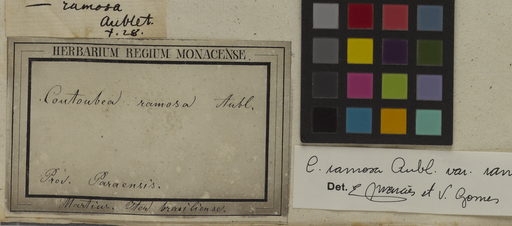 — ramosa
Aublet.
t. 28.
HERBARIUM REGIUM MONACENSE.
Coutoubea ramosa Aubl.
Prov. Paraensis.
Martius. Iter brasiliense.
C. ramosa Aubl. var. ram
Det. et V. Gomes